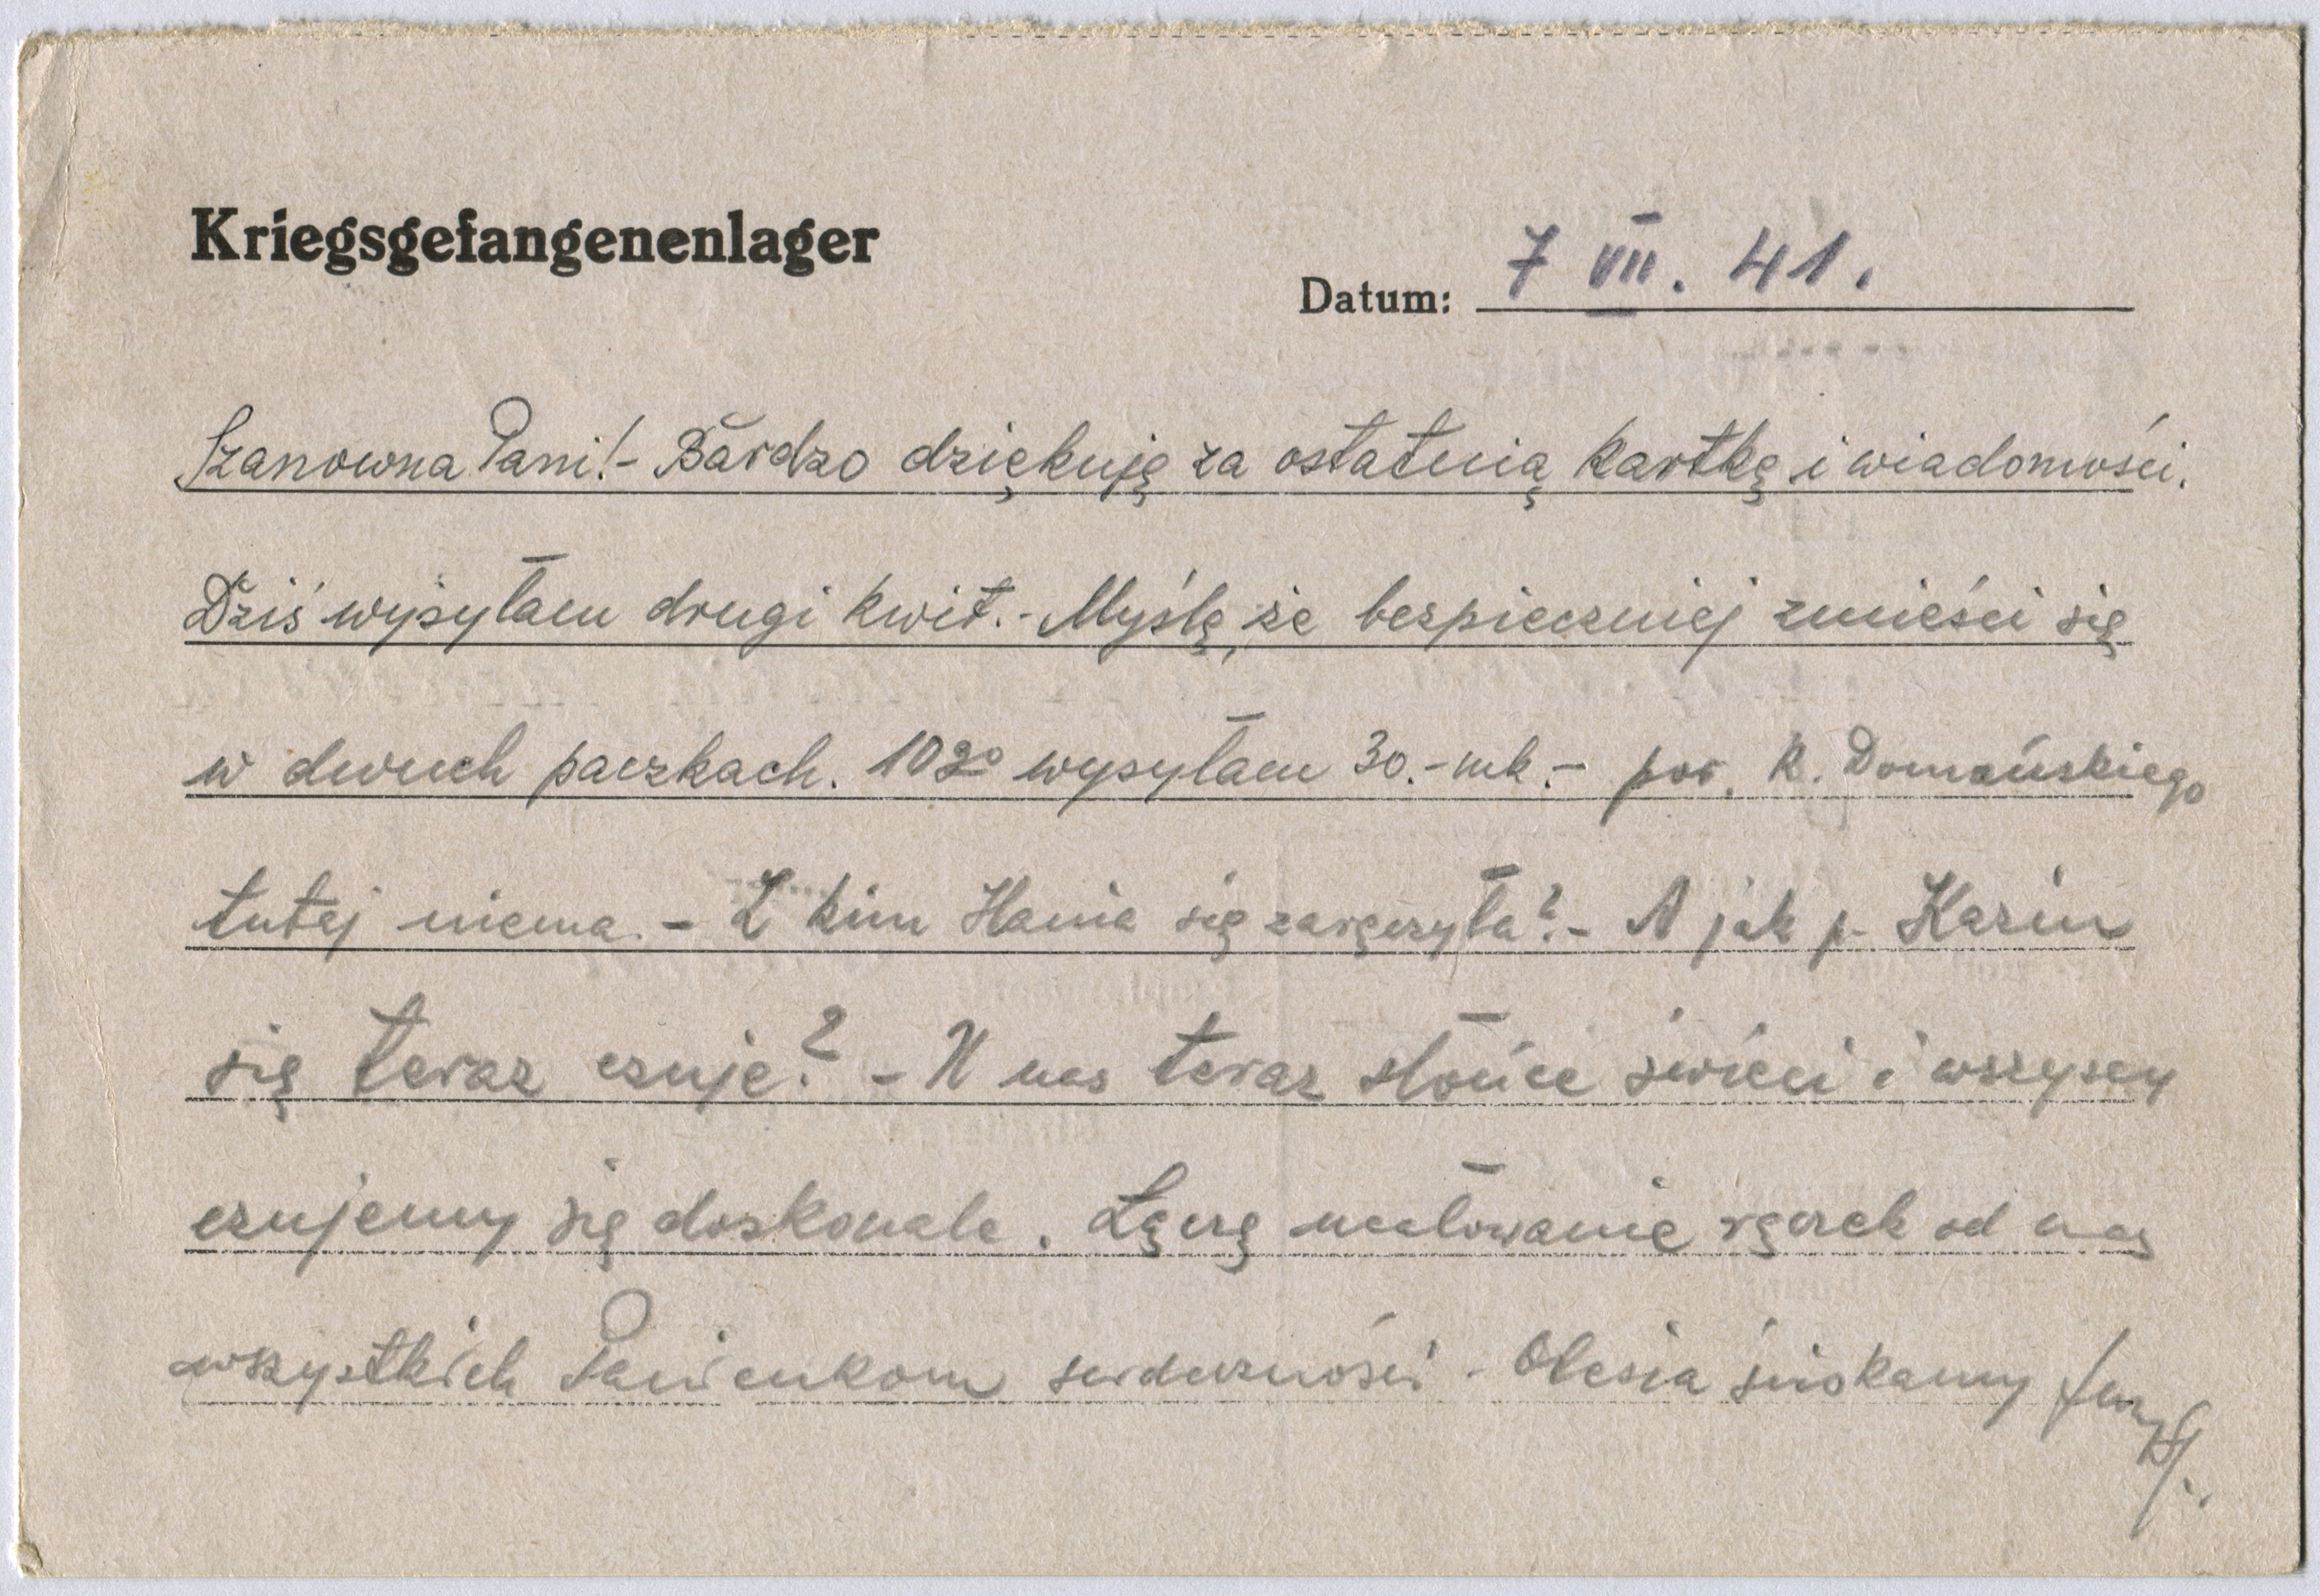 Kriegsgefangenenlager
Datum: 7 VII. 41.
Szanowna Pani! - Bardzo dziękuję za ostatnią kartkę i wiadomości.
Dziś wysyłam drugi kwit. - Myślę, że bezpieczniej zmieści się
w dwuch paczkach. 10go wysyłam 30.- mk. - por. K. Domańskiego
tutaj niema. - Z kim Hania się zaręczyła? - A jak p. Kazim
się teraz czuje? - U nas teraz słońce świeci i wszyscy
czujemy się doskonale. Łączę ucałowanie rączek od nas
wszystkich Panienkom serdeczności - Olesia ściskamy